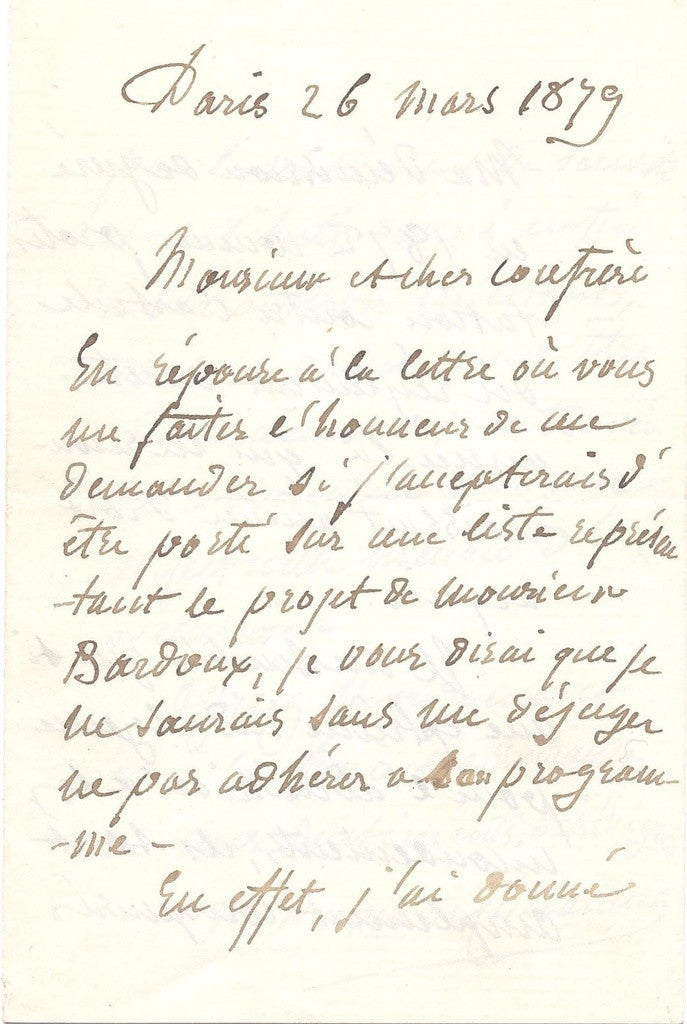 Paris 26 Mars 1879
Monsieur et cher confrère
En réponse à la lettre où vous
me faites l'honneur de me
demander si j'accepterais d'
être porté sur une liste représen
-tant le projet de monsieur
Bardoux, je vous dirai que je
ne saurais sans me déjuger
ne pas adhérer a son program-
-me-
En effet, j'ai donné